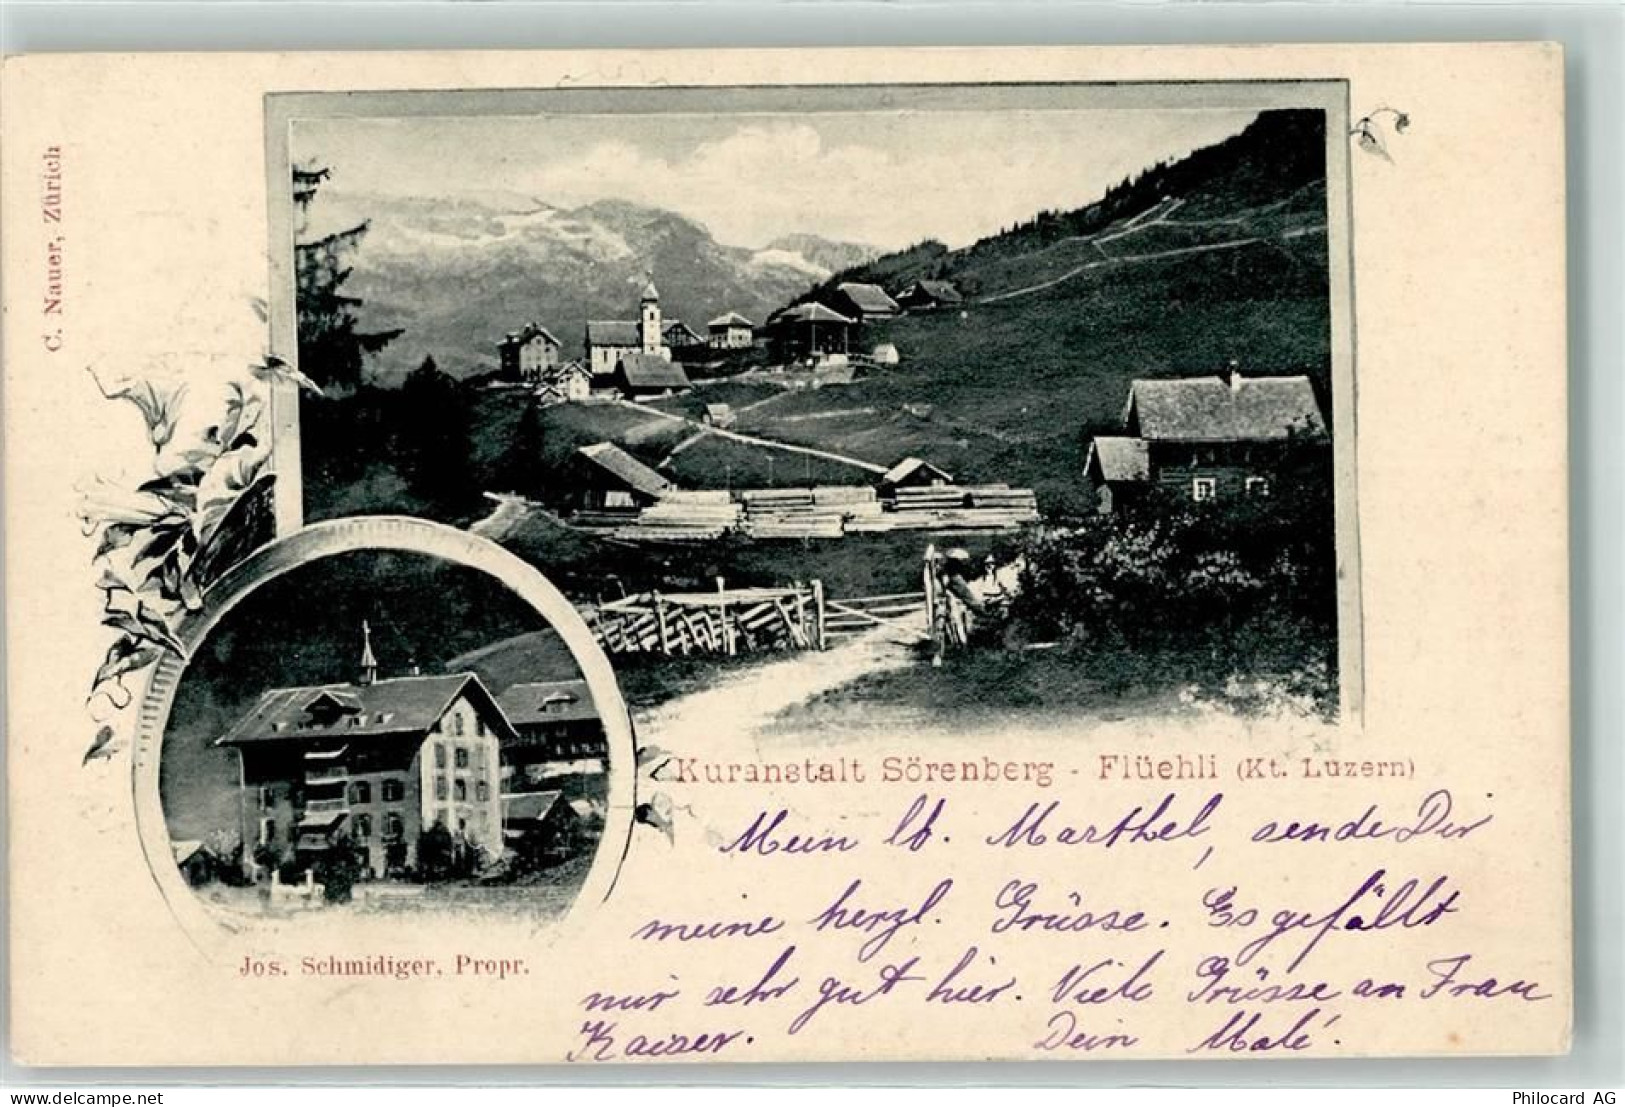 C. Nauer, Zürich
Kuranstalt Sörenberg - Flüehli (Kt. Luzern)
Jos. Schmidiger, Propr.
Mein lb. Marthel, sende Dir
meine herzl. Grüsse. Es gefällt
mir sehr gut hier. Viele Grüsse an Frau
Kaiser. Dein Malé.
www.delcampe.net
Philocard AG